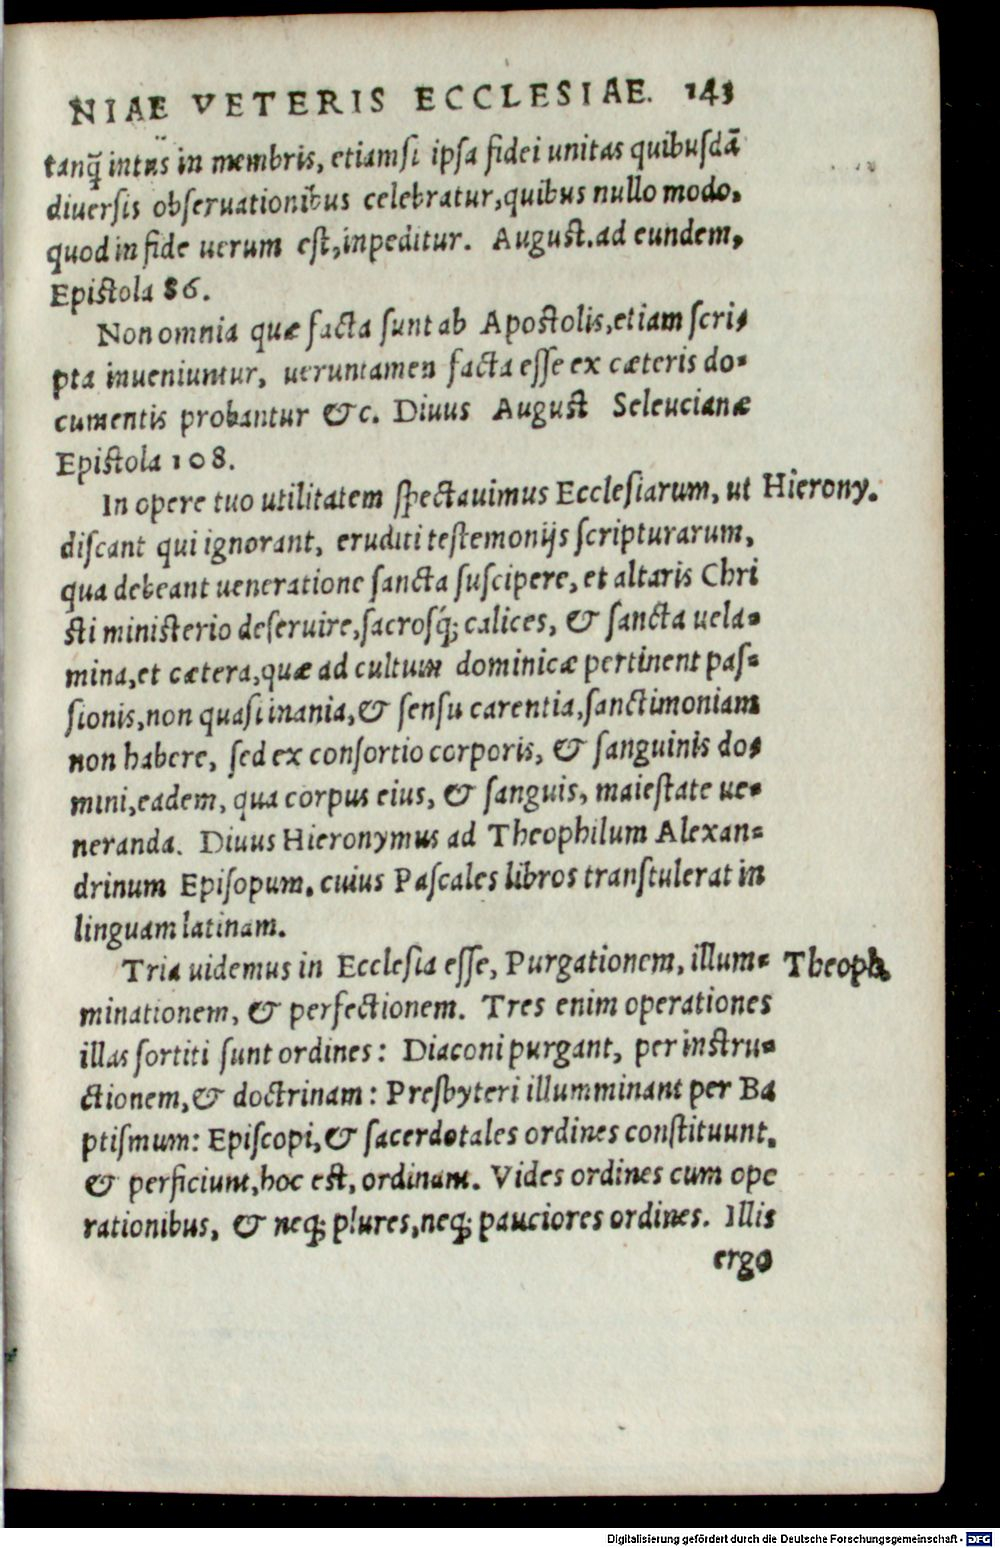 NIAE VETERIS ECCLESIAE. 143
tanq̃ intus in membris, etiamsi ipsa fidei unitas quibusdã
diuersis obseruationibus celebratur, quibus nullo modo,
quod in fide uerum est, inpeditur. August. ad eundem,
Epistola 86.
Non omnia quæ facta sunt ab Apostolis, etiam scri-
pta inueniuntur, ueruntamen facta esse ex cæteris do-
cumentis probantur &c. Diuus August Seleucianæ
Epistola 108.
In opere tuo utilitatem spectauimus Ecclesiarum, ut Hierony.
discant qui ignorant, eruditi testemonijs scripturarum,
qua debeant ueneratione sancta suscipere, et altaris Chri
sti ministerio deseruire, sacrosq́; calices, & sancta uela-
mina, et cætera, quæ ad cultum dominicæ pertinent pas-
sionis, non quasi inania, & sensu carentia, sanctimoniam
non habere, sed ex consortio corporis, & sanguinis do-
mini, eadem, qua corpus eius, & sanguis, maiestate ue-
neranda. Diuus Hieronymus ad Theophilum Alexan-
drinum Episopum. cuius Pascales libros transtulerat in
linguam latinam.
Tria uidemus in Ecclesia esse, Purgationem, illum- Theoph.
minationem, & perfectionem. Tres enim operationes
illas sortiti sunt ordines: Diaconi purgant, per instru-
ctionem, & doctrinam: Presbyteri illumminant per Ba
ptismum: Episcopi, & sacerdotales ordines constituunt,
& perficiunt, hoc est, ordinant. Vides ordines cum ope
rationibus, & neq; plures, neq; pauciores ordines. Illis
ergo
Digitalisierung gefördert durch die Deutsche Forschungsgemeinschaft - DFG